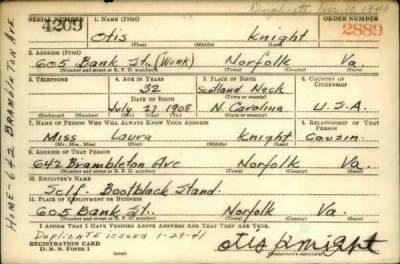 Duplicate Dec. 10, 1940
SERIAL NUMBER
4209
1. NAME (Print)
ORDER NUMBER
2889
Otis Knight
(First) (Middle) (Last)
2. ADDRESS (Print)
605 Bank St. (Work) Norfolk Va.
(Number and street or R. F. D. number) (Town) (County) (State)
3. TELEPHONE
4. AGE IN YEARS
5. PLACE OF BIRTH
6. COUNTRY OF CITIZENSHIP
32
Scotland Neck
DATE OF BIRTH
(Town or county)
July 27 1908 N. Carolina U.S.A.
(Exchange) (Number) (Mo.) (Day) (Yr.) (State or country)
7. NAME OF PERSON WHO WILL ALWAYS KNOW YOUR ADDRESS
8. RELATIONSHIP OF THAT PERSON
Miss Laura Knight Cousin
(Mr., Mrs., Miss) (First) (Middle) (Last)
9. ADDRESS OF THAT PERSON
642 Brambleton Ave Norfolk Va.
(Number and street or R. F. D. number) (Town) (County) (State)
10. EMPLOYER'S NAME
Self- Bootblack Stand.
11. PLACE OF EMPLOYMENT OR BUSINESS
605 Bank St. Norfolk Va.
(Number and street or R. F. D. number) (Town) (County) (State)
I AFFIRM THAT I HAVE VERIFIED ABOVE ANSWERS AND THAT THEY ARE TRUE.
Duplicate issued 1-29-41
REGISTRATION CARD
D. S. S. Form 1
Otis Knight
(Registrant's signature)
HOME-642 BRAMBLETON AVE.